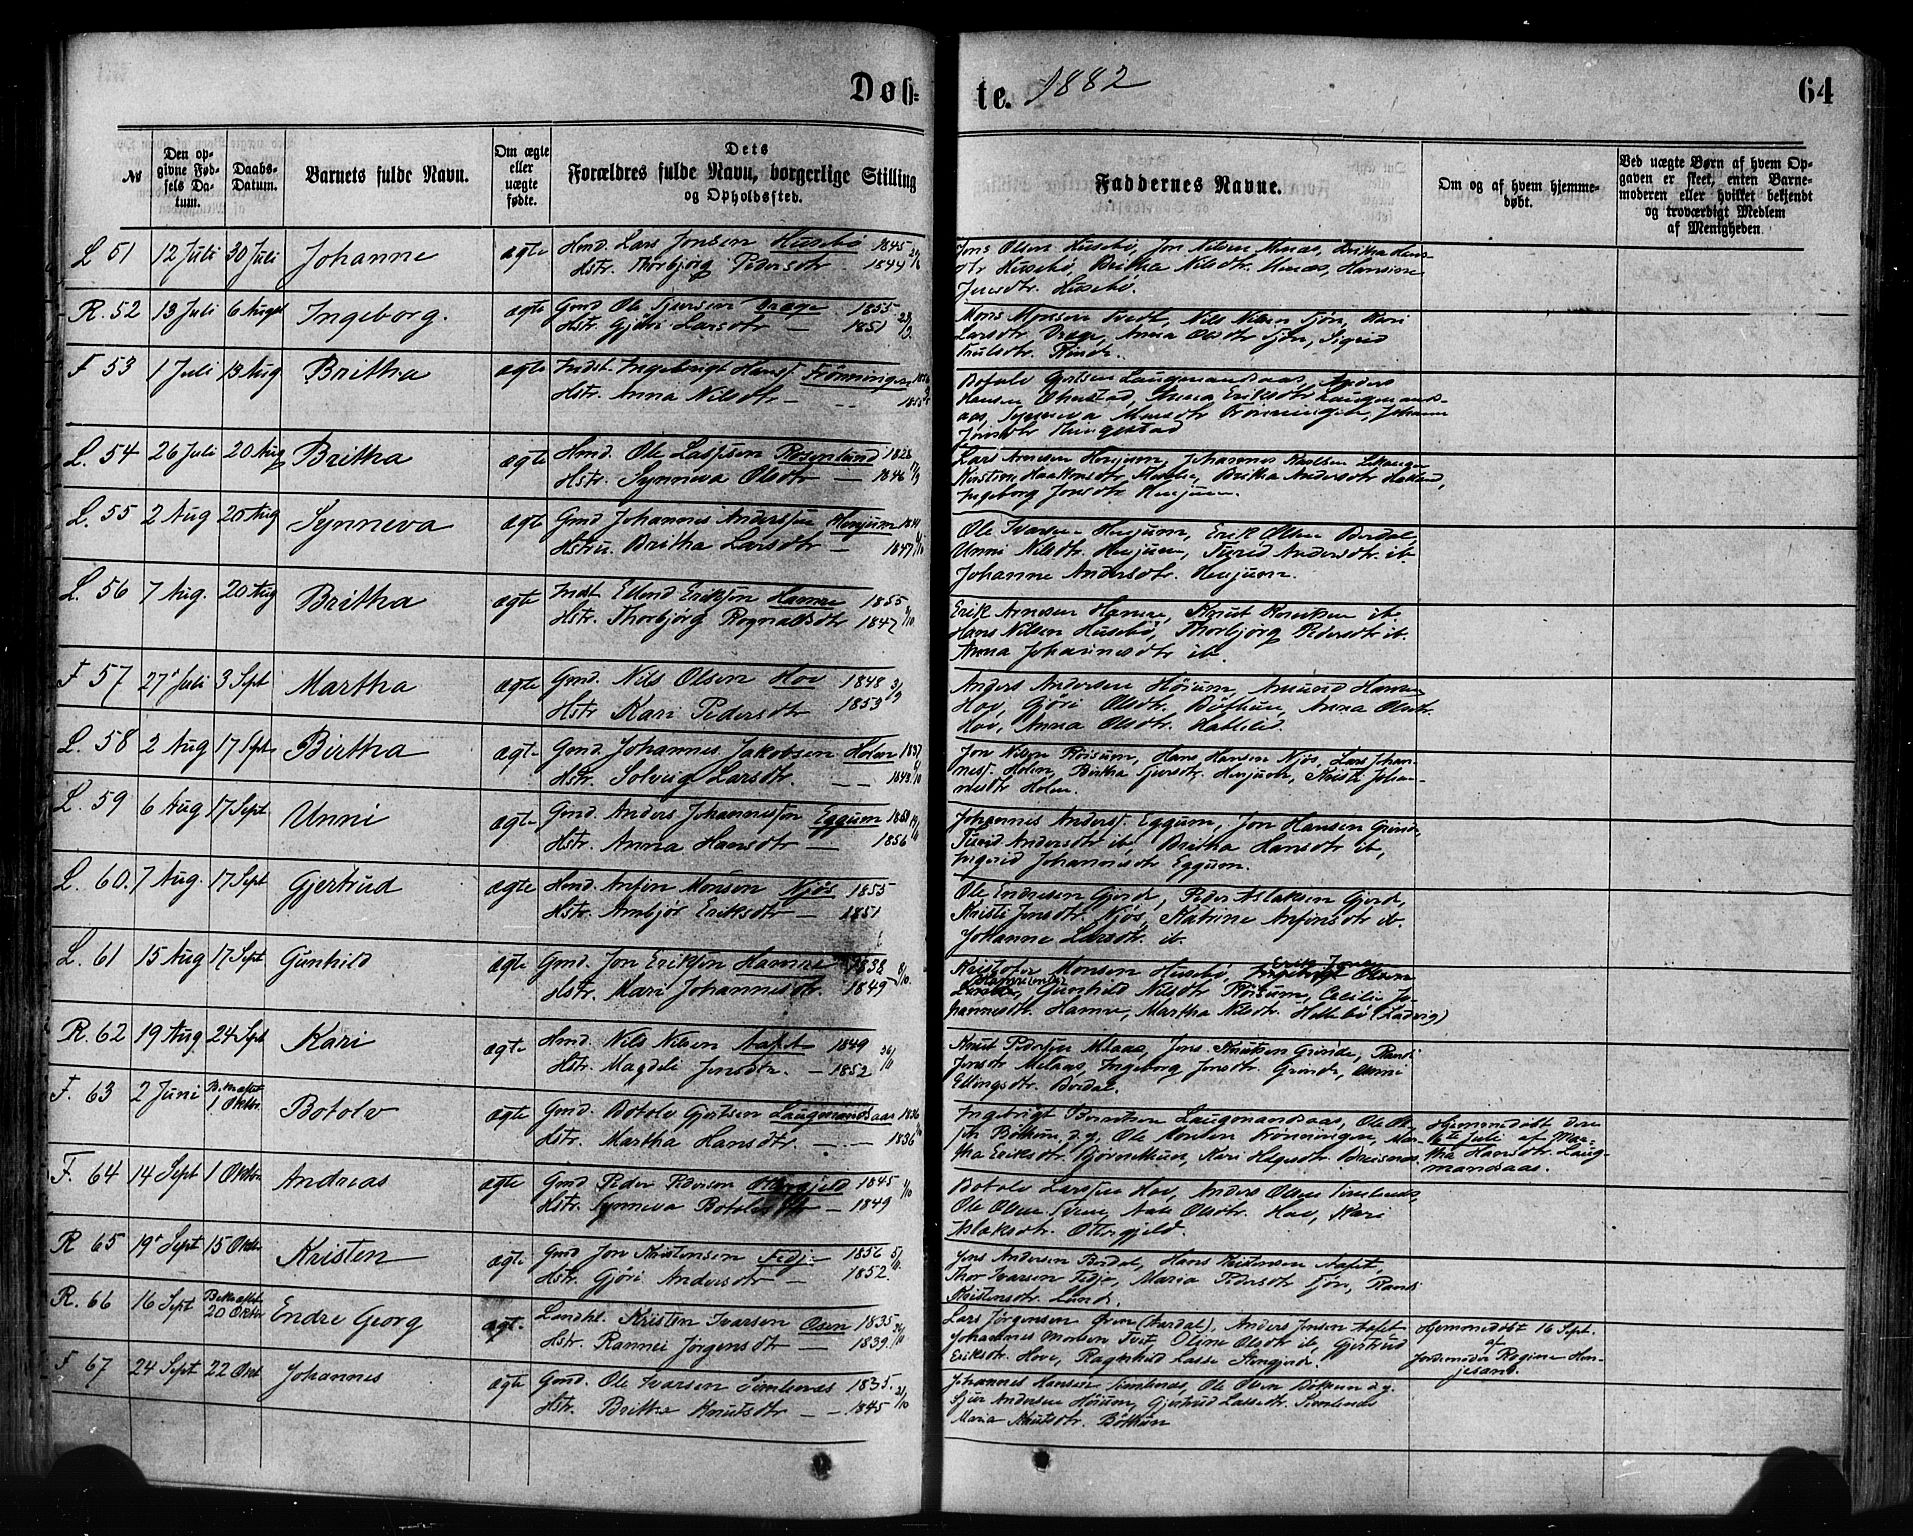 Døb-
te. 1882
64
№
Den opgivne Fødsels Datum.
Daabs-Datum.
Barnets fulde Navn.
Om ægte eller uægte fødte.
Dets Forældres fulde Navn, borgerlige Stilling og Opholdssted.
Faddernes Navne.
Om og af hvem hjemmedøbt.
Ved uægte Børn af hvem Opgaven er skeet, enten Barnemoderen eller hvilket bekjendt og troværdigt Medlem af Menigheden.
L 51 12 Juli 30 Juli Johanne ægte Hmd. Lars Jonsen Husebø 1845
Hstr. Thorbjørg Pedersdtr 1844
Jens Olsen Husebø, Jon Nilsen Menæs, Britha
Husebø, Britha Nilsdtr. Menæs, Hansine
Jensdtr. Husebø.
R. 52 13 Juli 6 Augst Ingeborg. ægte Gmd. Ole Sjursen Drage 1855
Hstr. Gjøri Larsdtr — 1851
Mons Monsen Tvedt, Nils Nilsen Fjøn, Kari
Larsdtr Drage, Anna Olsdtr Fjøn, Sigrid
F 53 1 Juli 13 Aug Britha ægte Indst. Ingebrigt Hansf. Frønningen
Hstr. Anna Nilsdtr —
Botolv Gjertsen Laugmandsaas, Anders
Hansen Ohnstad, Anna Eriksdtr Laugmands-
aas, Synneva Monsdtr Frønningen, Johanna
L. 54 26 Juli 20 Aug Britha ægte Hmd. Ole Lassesen Rosenlund 1828
Hstr. Synneva Olsdtr — 1846
Lars Arnesen Henjum, Johannes
Kirstine Haakonsdtr Britha Andersdtr
Ingeborg Jonsdtr Henjum.
L. 55 2 Aug 20 Aug Synneva ægte Gmd Johannes Andersen Henjum
Hstru. Britha Larsdtr — 1847
Ole Ivarsen Henjum, Erik Olsen Berdal,
Unni Nilsdtr. Henjum, Sigrid Andersdtr. ib.
Johanne Andersdtr. Henjum.
L. 56 7 Aug. 20 Aug Britha ægte Indst Ellend Eriksen Hamre 1855
Hstr. Thorbjørg Rognaldsdtr 1847
Erik Arnesen Hamre, Knut ib.
Hans Nilsen Husebø, Thorbjørg Pedersdtr ib.
Anna Johannesdtr ib.
F 57 27 Juli 3 Sept Martha ægte Gmd. Nils Olsen Hov 1848
Hstr Kari Pedersdtr 1853
Anders Andersen Høium, Amund Hansen
Hov, Gjøri Olsdtr. Bøthun, Anna Olsdtr.
Hov, Anna Olsdtr.
L. 58 2 Aug 17 Sept Birtha ægte Gmd. Johannes Jakobsen Holen 1837
Hstr. Solveig Larsdtr. — 1843
Jon Nilsen Hans Hansen Njøs, Lars Johan-
nesf. Holen, Britha Sjursdtr. Henjum, Kristi Johan-
nesdtr Holen.
L. 59 6 Aug 17 Sept. Unni ægte Gmd. Anders Johannessen Eggum
Hstr. Anna Hansdtr — 1856
Johannes Andersf. Eggum, Jon Hansen Grinde,
Andersdtr ib. Britha Hansdtr ib,
Ingrid Johannesdtr Eggum.
L. 60. 7 Aug. 17 Sept Gjertrud ægte Hmd. Anfin Monsen Njøs 1855
Hstr. Arnbjør Eriksdtr — 1851
Ole Endresen Gjerde, Peder Aslaksen Gjerde,
Kristi Jensdtr. Njøs, Katrine Anfinsdtr ib.
Johanne Larsdtr. ib.
L. 61 15 Aug 17 Sept. Gunhild ægte Gmd. Jon Eriksen Hamre 1838
Hstr. Mari Johannesdtr. 1849
Kristofer Monsen Husebø, Erik Jonsen
Gunhild Nilsdtr Cecilie Jo-
hannesdtr. Hamre, Martha Nilsdtr. (Ladvig)
R. 62 19 Aug 24 Sept Kari ægte Hmd. Nils Nilsen Aafet 1849
Hstr. Magdeli Jensdtr. — 1852
Knut Pedersen Melaas, Jens Knutsen Grinde,
Jonsdtr Melaas, Ingeborg Jonsdtr. Grinde,
Ellingsdtr. Berdal.
F. 63 2 Juni 1 Oktbr. Botolv ægte Gmd. Botolv Gjertsen Laugmandsaas 1836
Hstr. Martha Hansdtr. — — 1836
Ingebrigt Laugmandsaas, Ole
Bøthun, Ole Frønningen,
Eriksdtr. Kari
Hjemmedøbt den
Juli af Mar-
tha Hansdtr. Laug-
mandsaas.
F. 64 14 Sept 1 Oktbr Andreas ægte Gmd Peder Pedersen Ottergjeld 1845
Hstr. Synneva Botolvsdtr — 1849
Botolv Larssen Hov, Anders Olsen Simlenæs
Ole Olsen Olsdtr. Hov, Kari
Aslaksdtr. Ottergjeld.
R 65 19 Sept 15 Oktbr Kristen ægte Gmd Jon Kristensen Fedje 1856
Hstr. Gjøri Andersdtr — 1852.
Jens Andersen Berdal, Hans Kristensen Aafet,
Thor Ivarsen Fedje, Maria Pedersdtr Fjøn,
Kristensdtr. Lunde.
R. 66 16 Sept 20 Oktbr Endre Georg ægt. Landhl. Kristen Ivarsen Olsen 1835
Hstr. Rannei Jørgensdtr — 1839.
Lars Jørgensen (Aardal), Anders Jensen Aafet
Johannes Tvet, Oline Olsdtr ib, Gjertrud
Eriksdtr. Hove, Ragnhild Lasse
Hjemmedøbt 16 Sept.
af
Jordemoder Regine Hen-
jesand.
F 67 24 Sept 22 Okt Johannes ægte Gmd. Ole Ivarsen Simlenæs 1835.
Hstr. Britha Knutsdtr — — 1845
Johannes Hansen Simlenæs, Ole Olsen Bøthun
Sjur Andersen Høium, Gjertrud Lassedtr. Simlenæs
Maria Knutsdtr. Bøthun